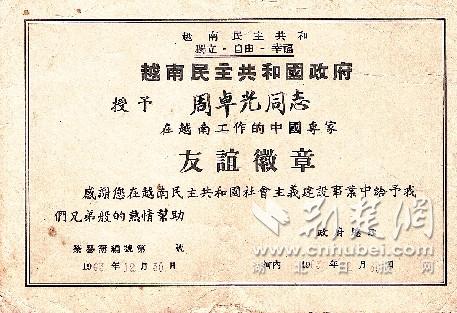 越南民主共和
獨立-自由-幸福
越南民主共和國政府
授予 周卓光同志
在越南工作的中國專家
友誼徽章
感謝您在越南民主共和國社會主義建設事業中給予我
們兄弟般的熱情幫助
政府總理
榮譽簿編號第 號
河內 19
1963 年 12 月 30 日
荆楚网
湖北日报网